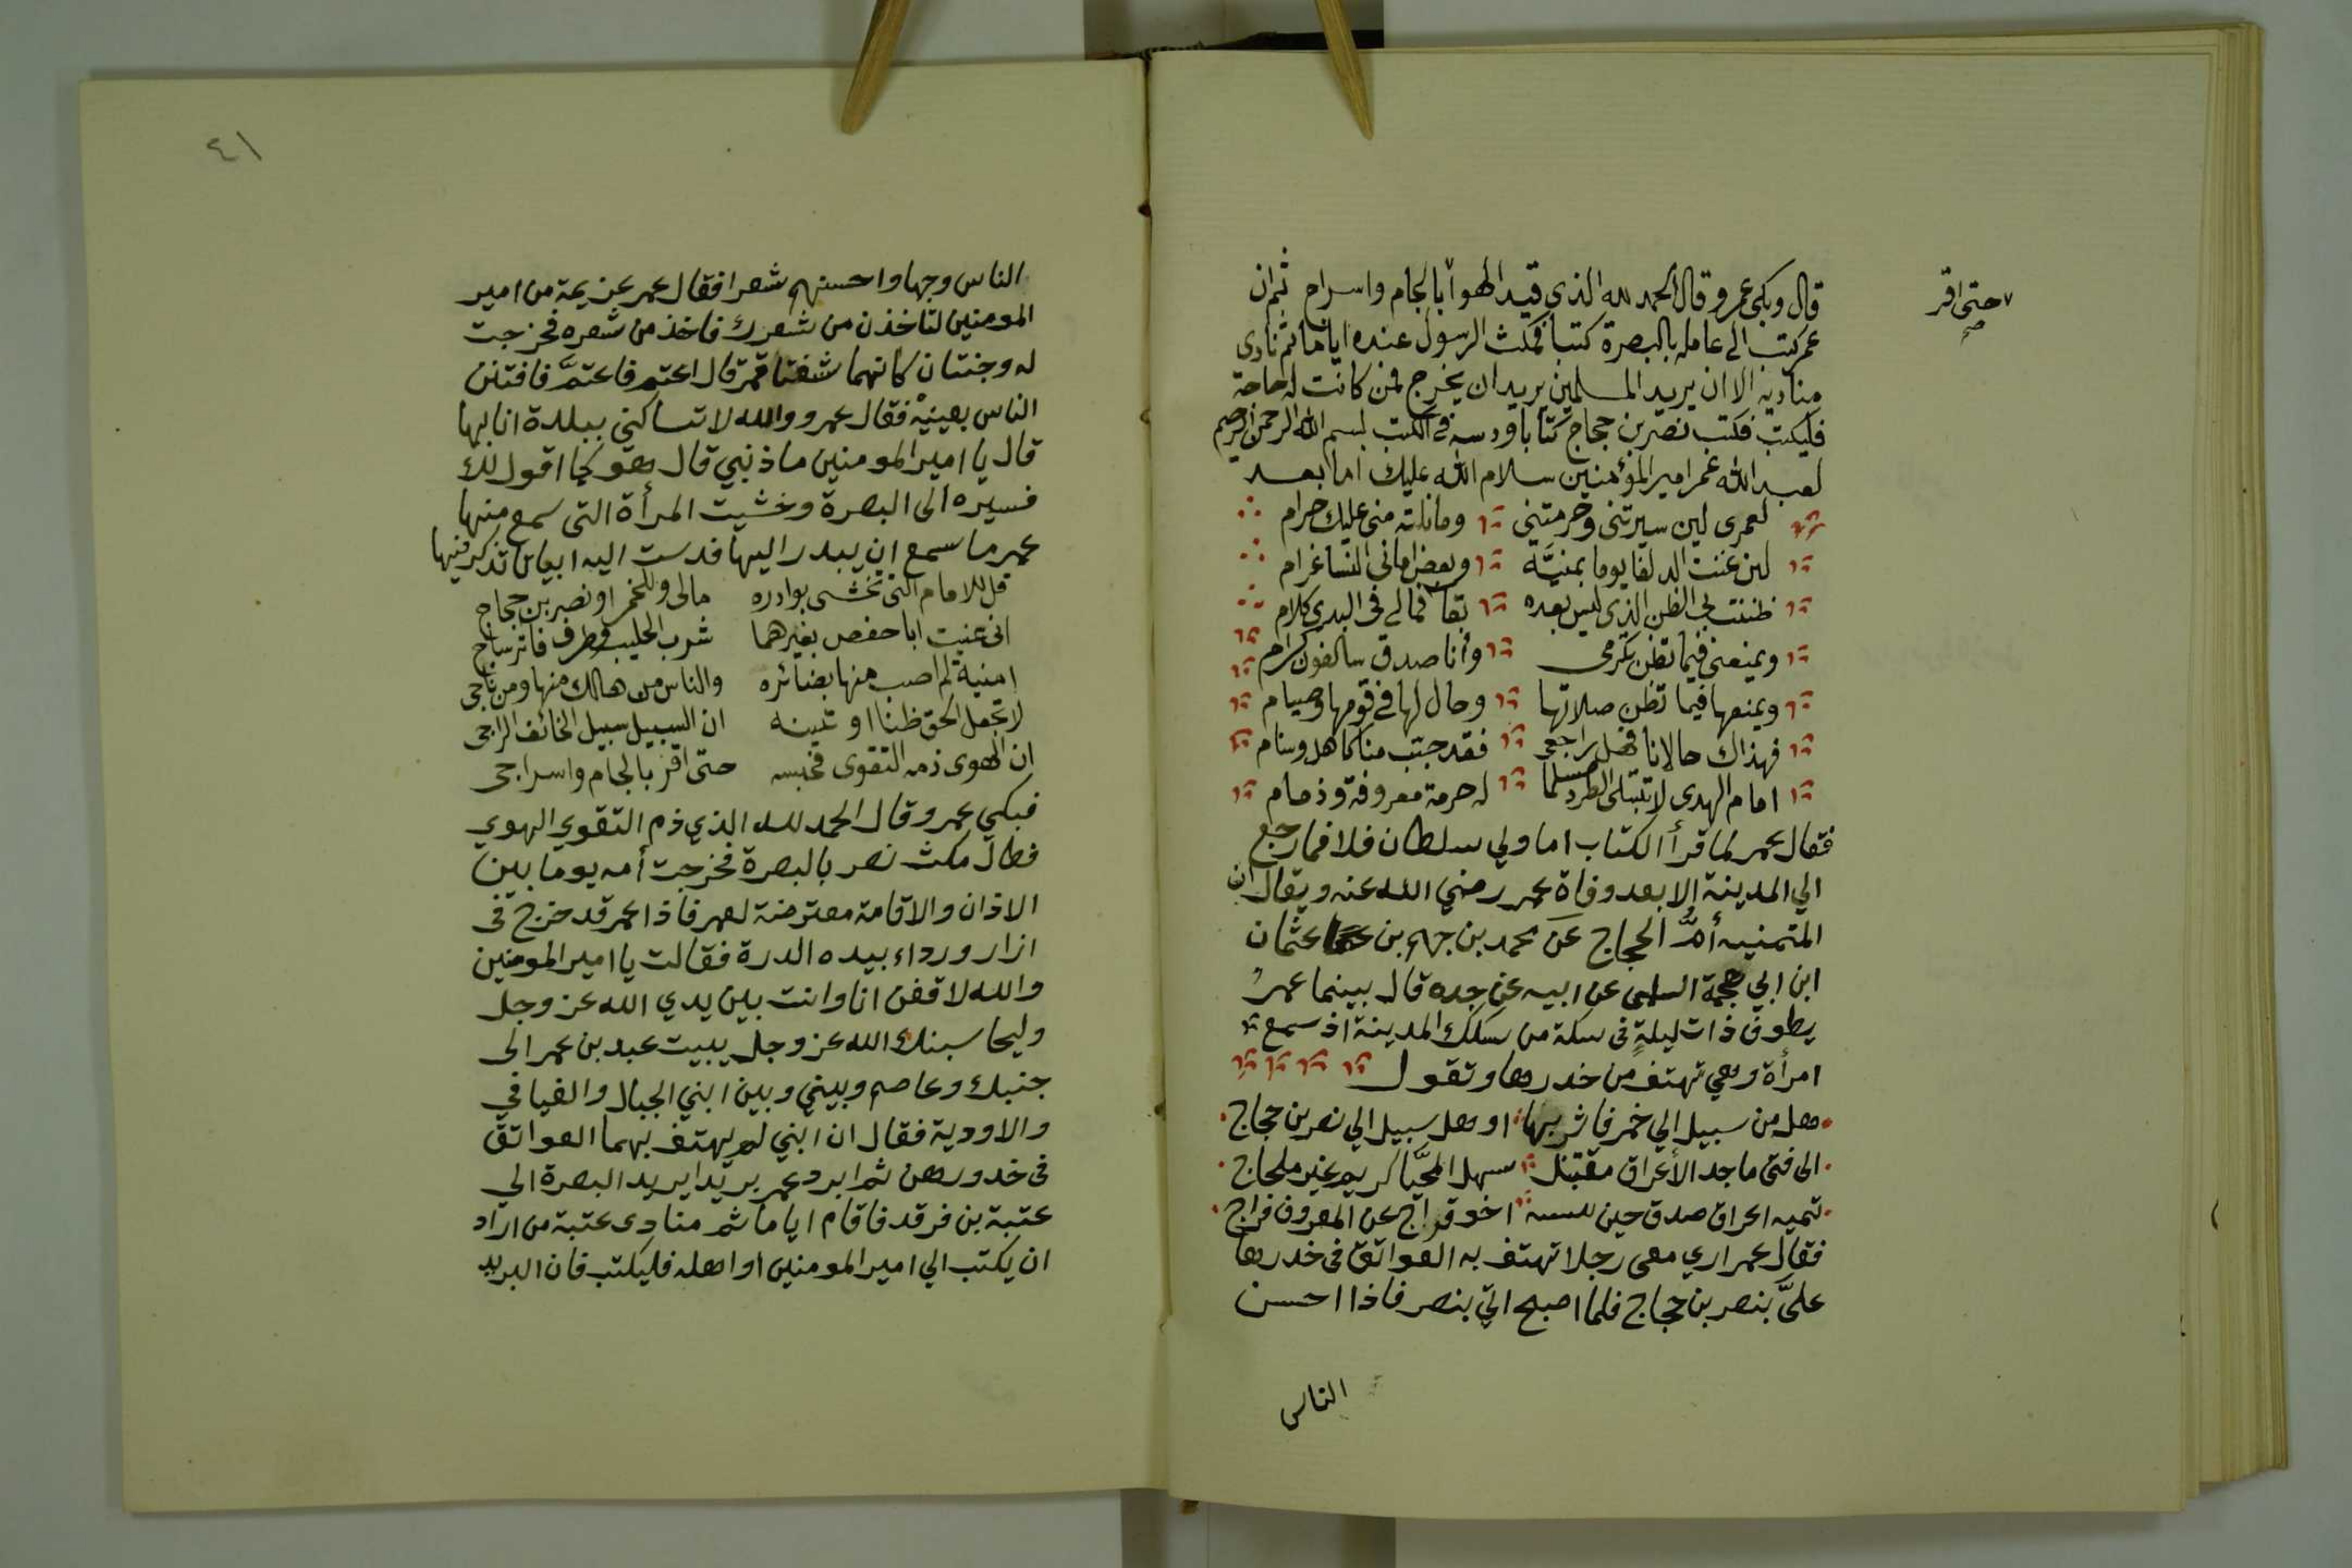 حتى اقر
صح
قال وبكى عمر وقال الحمد لله الذي قيد الهوآ بالجام واسراج ثم ان
عمر كتب الى عامله بالبصرة كتبا فمكث الرسول عنده اياما ثم نادى
مناديه الا ان بريد المسلمين يريد ان يخرج فمن كانت له حاجة
فليكتب فكتب نصر بن حجاج كتابا ودسه في الكتب بسم الله الرحمن الرحيم
لعبد الله عمر امير المؤمنين سلام الله عليك اما بعد
لعمرى لين سيرتنى وحرمتنى وما نلته منى عليك حرام
لين غنت الدلفا يوما بمنيَّة وبعض امانى النسا غرام
ظننت بى الظن الذى ليس بعده بقآ فمالى فى البدي كلام
ويمنعنى فيما تظن تكرمى وأنا صدق سالفون كرام
ويمنعها فيما تظن صلاتها وحال لها فى قومها وصيام
فهذاك حالانا فهل راجعى فقد جبّ منا كاهل وسنام
امام الهدى لا تبتلى الطرد مسلما له حرمة معروفة وذمام
فقال عمر لما قرأ الكتاب اما ولي سلطان فلا فما رجع
الي المدينة الا بعد وفاة عمر رضي الله عنه ويقال ان
المتمنيه أمُّ الحجاج عَن محمد بن جهم بن عثمان
ابن ابي جهمة السلمى عن ابيه عن جده قال بينما عمرُ
يطوف ذات ليلةٍ فى سكة من سكك المدينة اذ سمع
امرأة وهي تهتف من خدرها وتقول
هل من سبيل الي خمر فاشربها او هل سبيل الي نصر بن حجاج
الى فتى ماجد الأعراق مقتبل سهل المحيَّا كريم غير ملجاج
تميه اعراق صدق حين اخو قراج عن المعروف فراج
فقال عمر اري معى رجلا تهتف به العواتق فى خدرها
علىَّ بنصر بن حجاج فلما اصبح اتي بنصر فاذا احسن
الناس
٤١
الناس وجها واحسنهم شعرا فقال عمر عزيمة من امير
المومنين لتاخذن من شعرك فاخذ من شعره فخرجت
له وجنتان كانهما شقتا قمر قال اعتم فاعتمَّ فافتتن
الناس بعينيْه فقال عمر ووالله لا تساكنى ببلدة انا بها
قال يا امير المومنين ماذنبي قال هو كما اقول لك
فسيره الى البصرة وخشيت المرأة التى سمع منها
عمر ما سمع ان يبدر اليها فدست اليه ابياتا تذكر فيها
قل للامام التى تخشى بوادره مالى وللخمر او نصر بن حجاج
انى عنيت ابا حفص بغيرهما شرب الحليب وطرف فاتر ساج
امنية لم اصب منها بضائره والناس من هالك منها ومن ناجى
لا تجعل الحق ظنا او تبينه ان السبيل سبيل الخائف الراجى
ان الهوى ذمه التقوى فحبسه حتى اقر بالجام واسراجى
فبكي عمر وقال الحمد لله الذي ذم التقوي الهوي
فطال مكث نصر بالبصرة فخرجت أمه يوما بين
الاذان والاقامة معترضة لعمر فاذا عمر قد خرج فى
ازار ورداء بيده الدرة فقالت يا امير المومنين
والله لاقفن انا وانت بين يدي الله عز وجل
وليحاسبنك الله عز وجل يبيت عبد بن عمر الى
جنبك وعاصم وبيني وبين ابني الجبال والفيافي
والاودية فقال ان ابني لم يهتف بهما العواتق
فى خدورهن ثم ابرد عمر بريدا يريد البصرة الي
عتبة بن فرقد فاقام اياما ثم منادى عتبة من اراد
ان يكتب الي امير المومنين او اهله فليكتب فان البريد